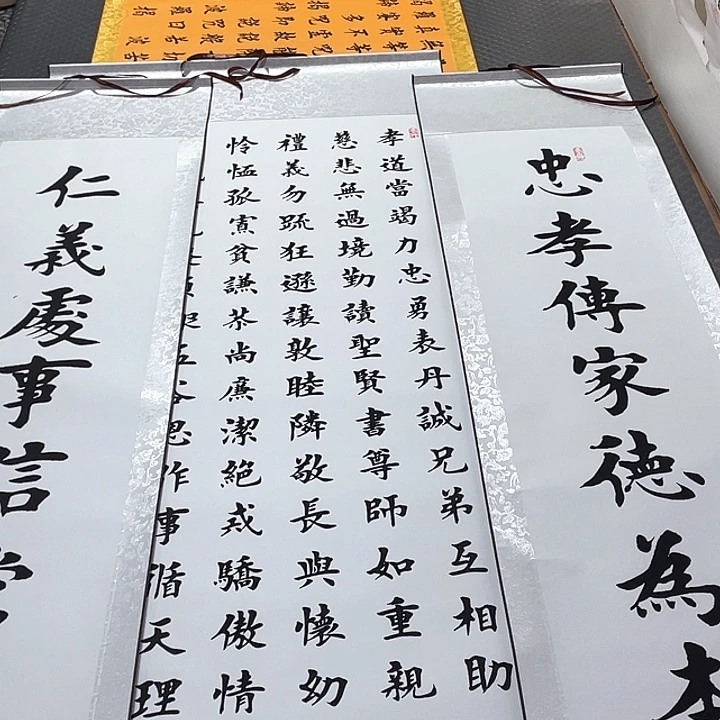 忠孝傳家德為本
孝道當竭力忠勇表丹誠兄弟互相助
慈悲無過境勤讀聖賢書尊師如重親
禮義勿疏狂遜讓敦睦隣敬長與懷幼
怜恤孤寡貧謙恭尚廉潔絕戒驕傲情
作事循天理
仁義處事信